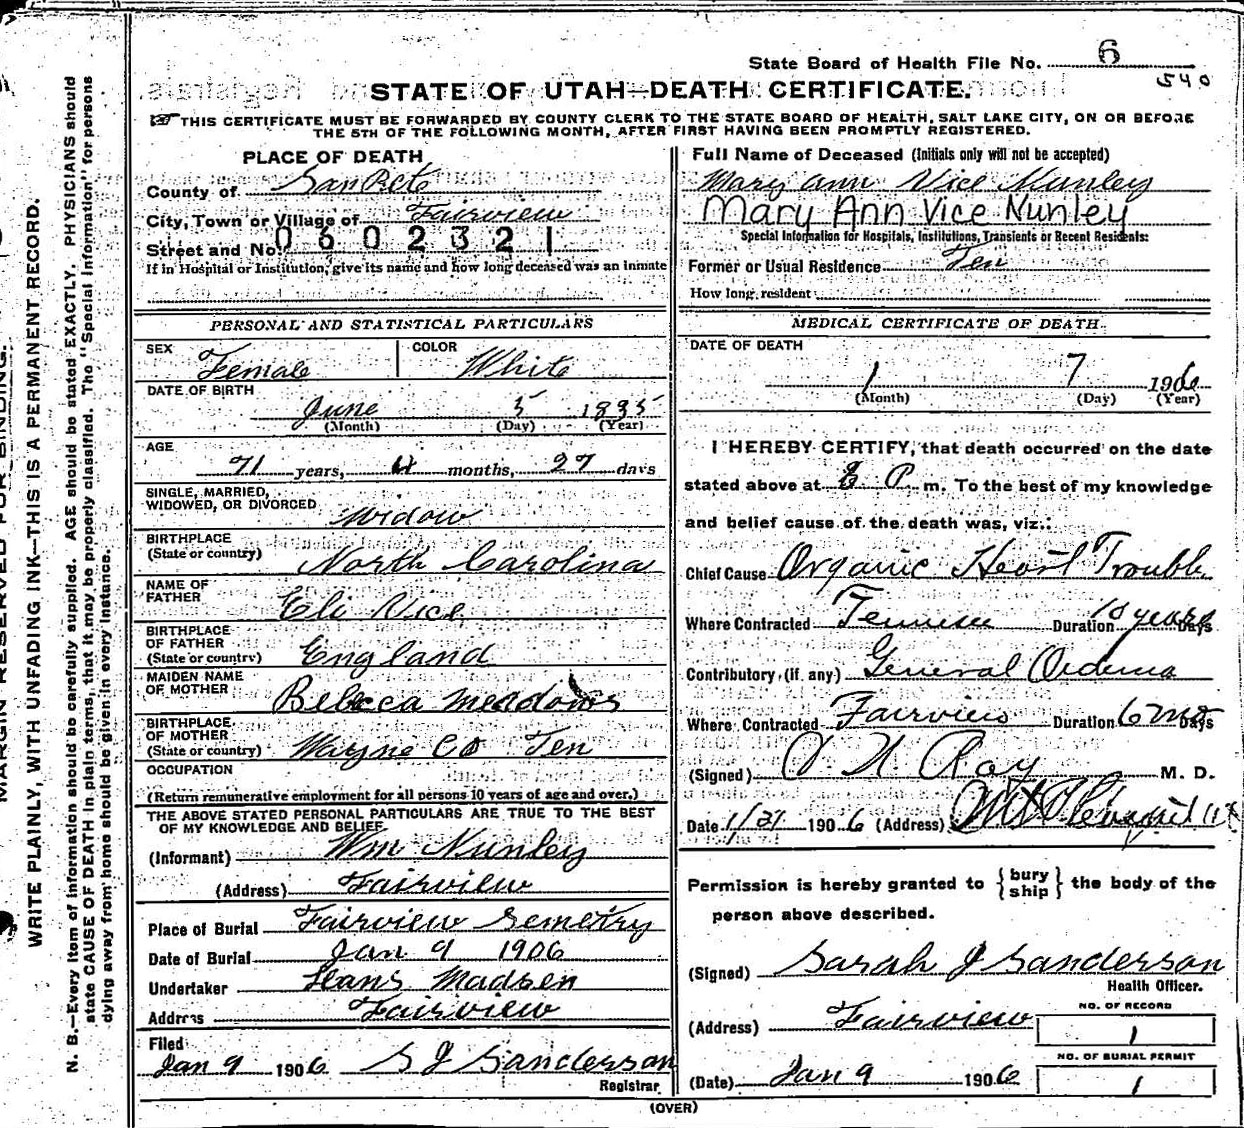 State Board of Health File No. 6
540
STATE OF UTAH—DEATH CERTIFICATE.
THIS CERTIFICATE MUST BE FORWARDED BY COUNTY CLERK TO THE STATE BOARD OF HEALTH, SALT LAKE CITY, ON OR BEFORE
THE 5TH OF THE FOLLOWING MONTH, AFTER FIRST HAVING BEEN PROMPTLY REGISTERED.
PLACE OF DEATH
County of SanPete
City, Town or Village of Fairview
Street and No. 0602321
If in Hospital or Institution, give its name and how long deceased was an inmate
Full Name of Deceased (Initials only will not be accepted)
Mary Ann Vice Nunley
Mary Ann Vice Nunley
Special Information for Hospitals, Institutions, Transients or Recent Residents:
Former or Usual Residence Ten
How long resident
PERSONAL AND STATISTICAL PARTICULARS
SEX Female COLOR White
DATE OF BIRTH
June 5 1835
(Month) (Day) (Year)
AGE
71 years, 4 months, 27 days
SINGLE, MARRIED,
WIDOWED, OR DIVORCED widow
BIRTHPLACE
(State or country) North Carolina
NAME OF
FATHER Eli Vice
BIRTHPLACE
OF FATHER
(State or country) England
MAIDEN NAME
OF MOTHER Rebecca Meadows
BIRTHPLACE
OF MOTHER
(State or country) Wayne Co Ten
OCCUPATION
(Return remunerative employment for all persons 10 years of age and over.)
THE ABOVE STATED PERSONAL PARTICULARS ARE TRUE TO THE BEST
OF MY KNOWLEDGE AND BELIEF
(Informant) Wm Nunley
(Address) Fairview
Place of Burial Fairview Semetry
Date of Burial Jan 9 1906
Undertaker Hans Madsen
Address Fairview
Filed
Jan 9 1906 S J Sanderson
Registrar
MEDICAL CERTIFICATE OF DEATH
DATE OF DEATH
1 7 1906
(Month) (Day) (Year)
I HEREBY CERTIFY, that death occurred on the date
stated above at P. m. To the best of my knowledge
and belief cause of the death was, viz.:
Chief Cause Organic Heart Trouble
Where Contracted Tennessee Duration 10 years Days
Contributory (if any) General Oedema
Where Contracted Fairview Duration 6 mos Days
(Signed) Ray M. D.
Date 1/21 1906 (Address) Mt Pleasant Ut
Permission is hereby granted to { bury ship } the body of the
person above described.
(Signed) Sarah J Sanderson
Health Officer.
(Address) Fairview
NO. OF RECORD
1
(Date) Jan 9 1906
NO. OF BURIAL PERMIT
1
(OVER)
MARGIN RESERVED FOR BINDING.
WRITE PLAINLY, WITH UNFADING INK—THIS IS A PERMANENT RECORD.
N. B.—Every item of information should be carefully supplied. AGE should be stated EXACTLY. PHYSICIANS should
state CAUSE OF DEATH in plain terms, that it may be properly classified. The "Special Information" for persons
dying away from home should be given in every instance.